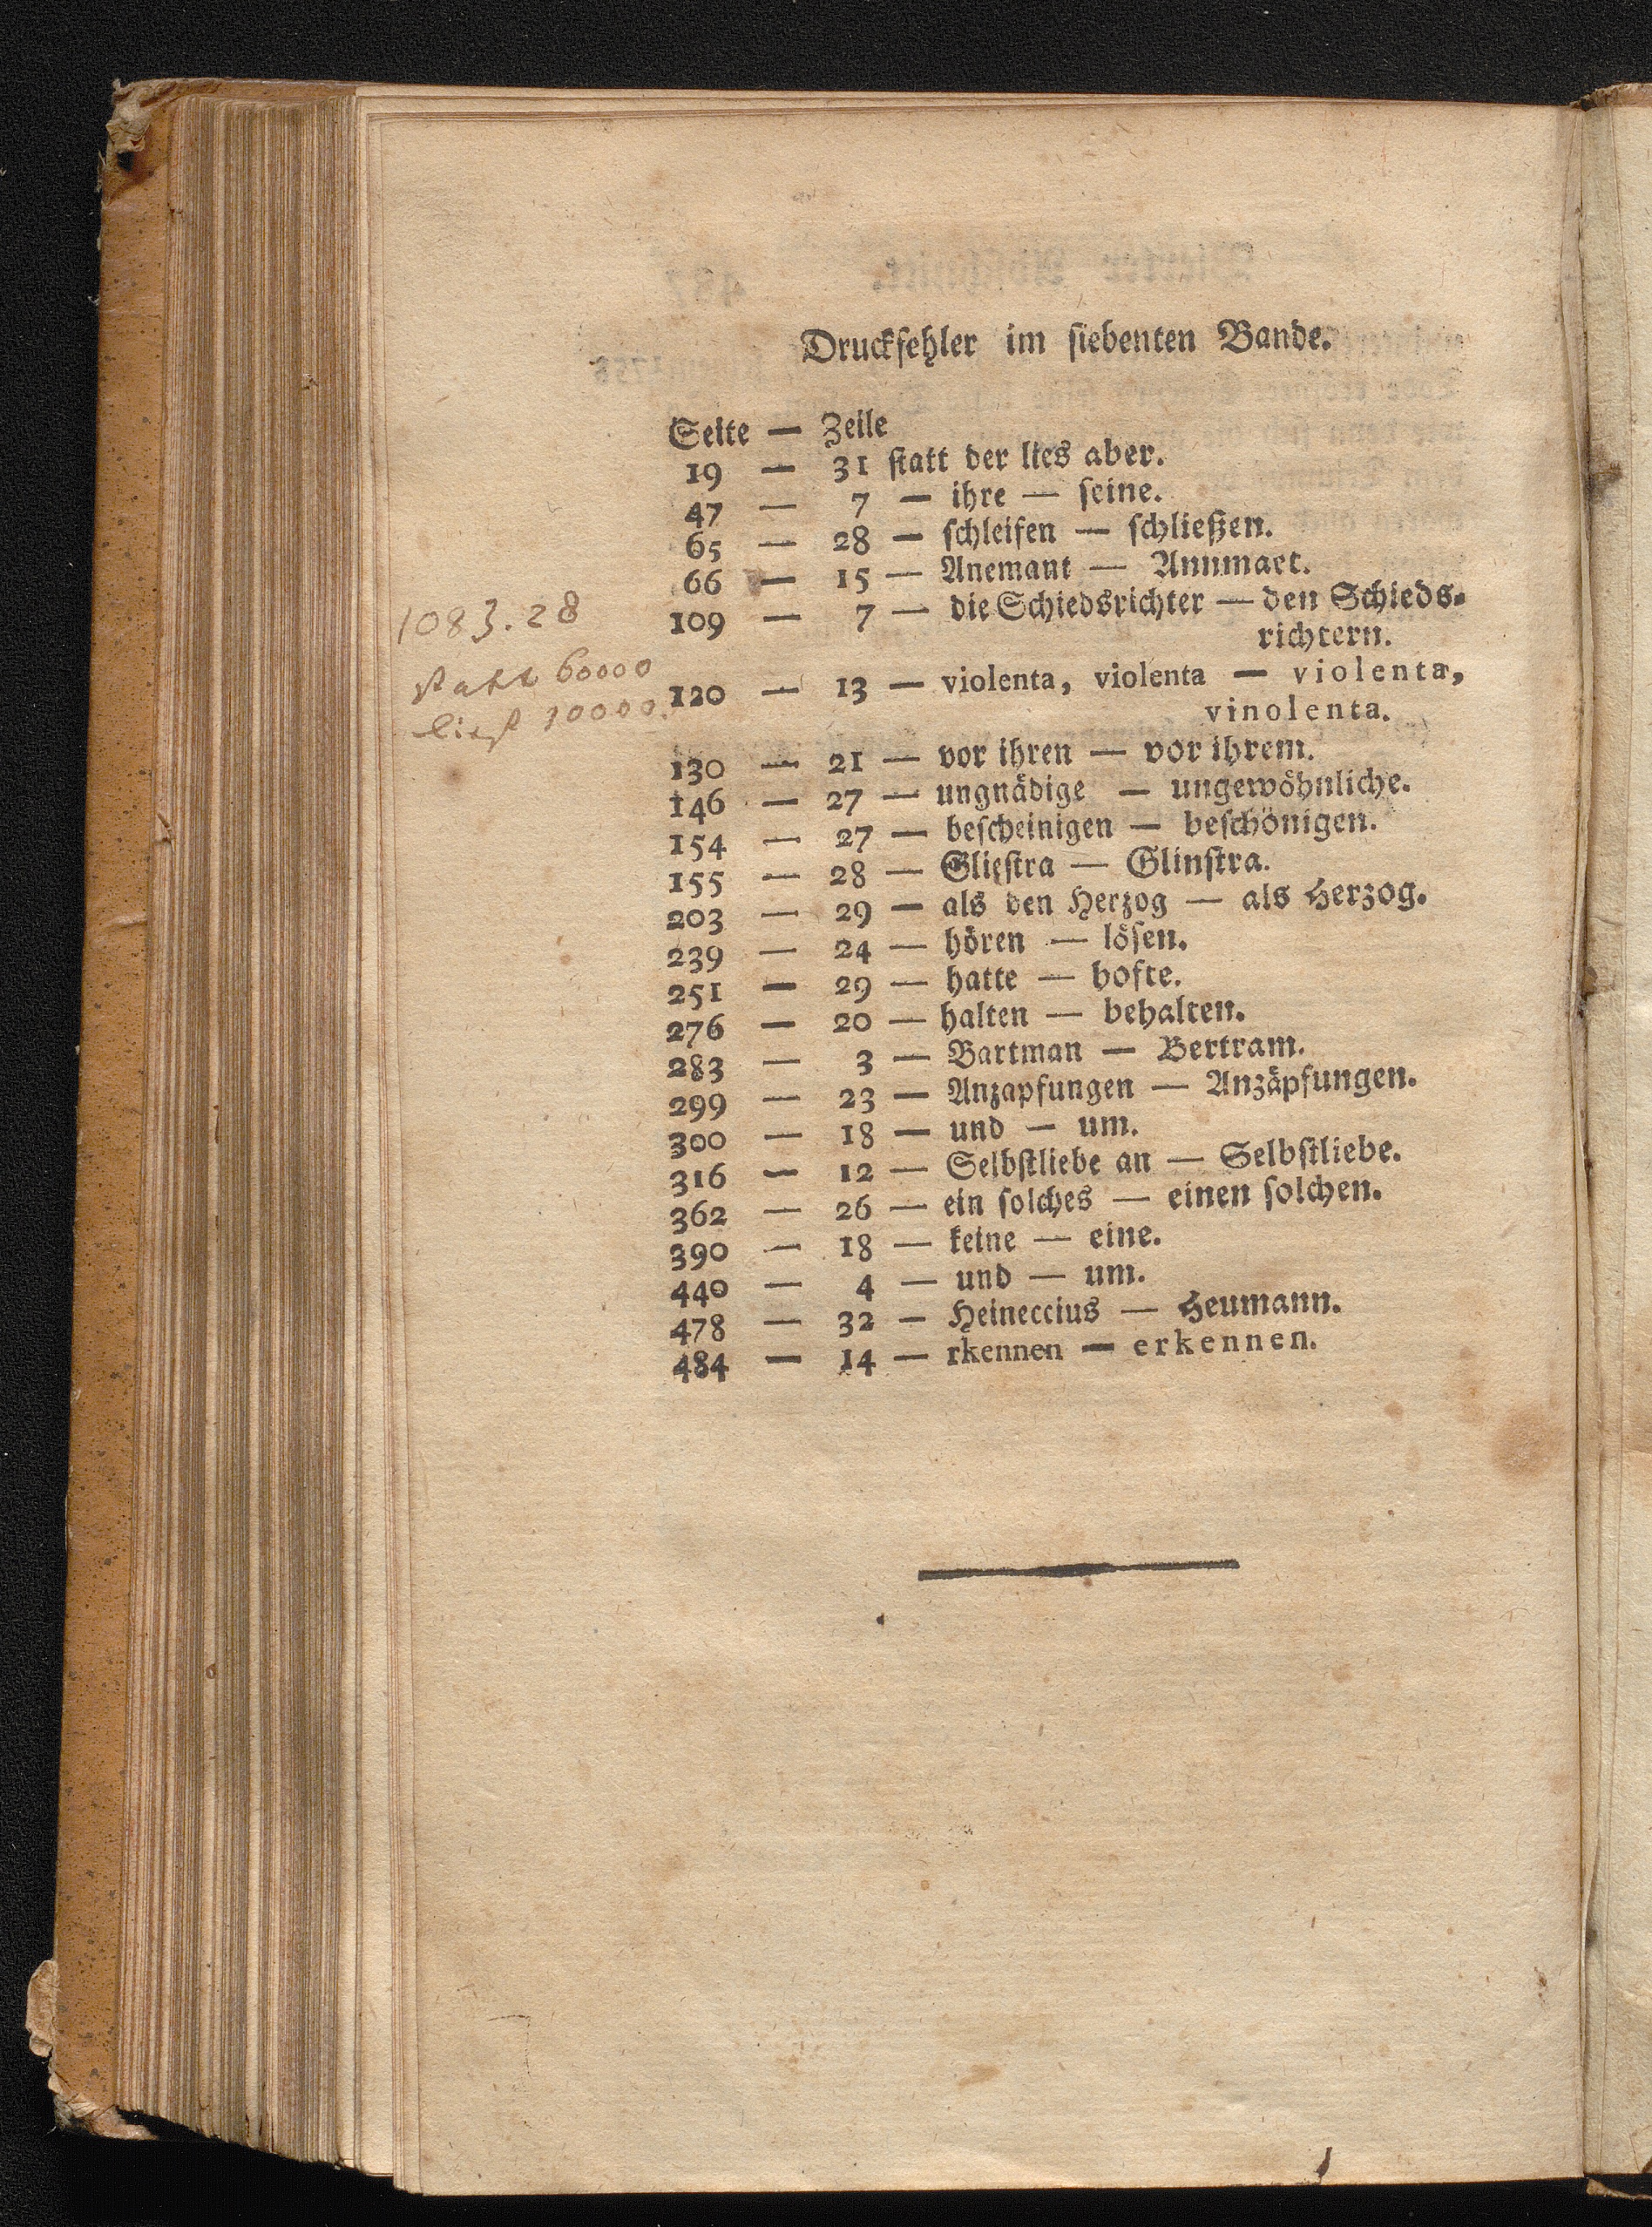 Druckfehler im siebenten Bande.
Seite — Zeile
19 — 31 statt der lies aber.
47 — 7 — ihre — seine.
65 — 28 — schleifen — schließen.
66 — 15 — Anemant — Annmaet.
109 — 7 — die Schiedsrichter — den Schieds-
richtern.
120 — 13 — violenta, violenta — violenta,
vinolenta.
130 — 21 — vor ihren — vor ihrem.
146 — 27 — ungnädige — ungewöhnliche.
154 — 27 — bescheinigen — beschönigen.
155 — 28 — Gliestra — Glinstra.
203 — 29 — als den Herzog — als Herzog.
239 — 24 — hören — lösen.
251 — 29 — hatte — hofte.
276 — 20 — halten — behalten.
283 — 3 — Bartman — Bertram.
299 — 23 — Anzapfungen — Anzäpfungen.
300 — 18 — und — um.
316 — 12 — Selbstliebe an — Selbstliebe.
362 — 26 — ein solches — einen solchen.
390 — 18 — keine — eine.
440 — 4 — und — um.
478 — 32 — Heineccius — Heumann.
484 — 14 — rkennen — erkennen.
1083.28
statt 60000
ließ 10000.